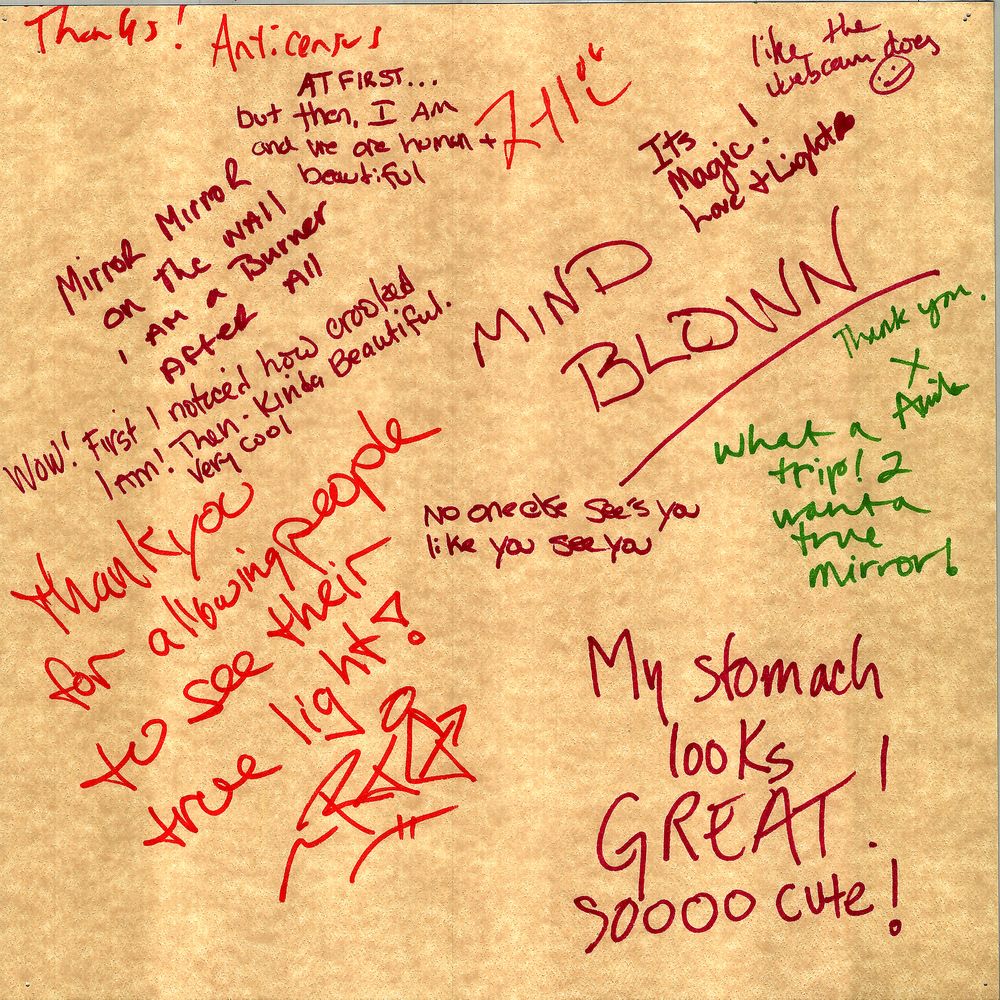 Thanks!
Anticensus
AT FIRST...
but then, I AM
and we are human +
beautiful
like the
webcam does
Its
Magic!
Love + Light
Mirror Mirror
on the wall
I AM a Burner
After All
MIND
BLOWN
Wow! First I noticed how crooked
I am! Then - Kinda Beautiful.
very cool
Thank you.
X
what a
trip! 2
want a
true
mirror!
No one else see's you
like you see you
thank you
for allowing people
to see their
true light!
My stomach
looks
GREAT!
soooo cute!